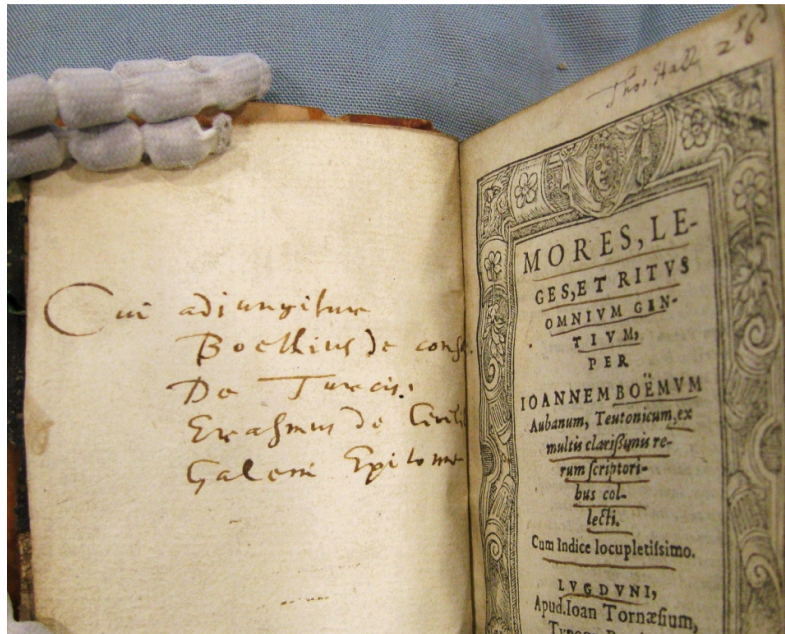 Cui adiungitur
Boethius de cons.
De Turcis.
Erasmus de Civil
Galeni Epitome
Tho: Hall 286
MORES, LE-
GES, ET RITVS
OMNIVM GEN-
TIVM,
PER
IOANNEM BOËMVM
Aubanum, Teutonicum, ex
multis clarißimis re-
rum scriptori-
bus col-
lecti.
Cum Indice locupletissimo.
LVGDVNI,
Apud. Ioan Tornæsium,